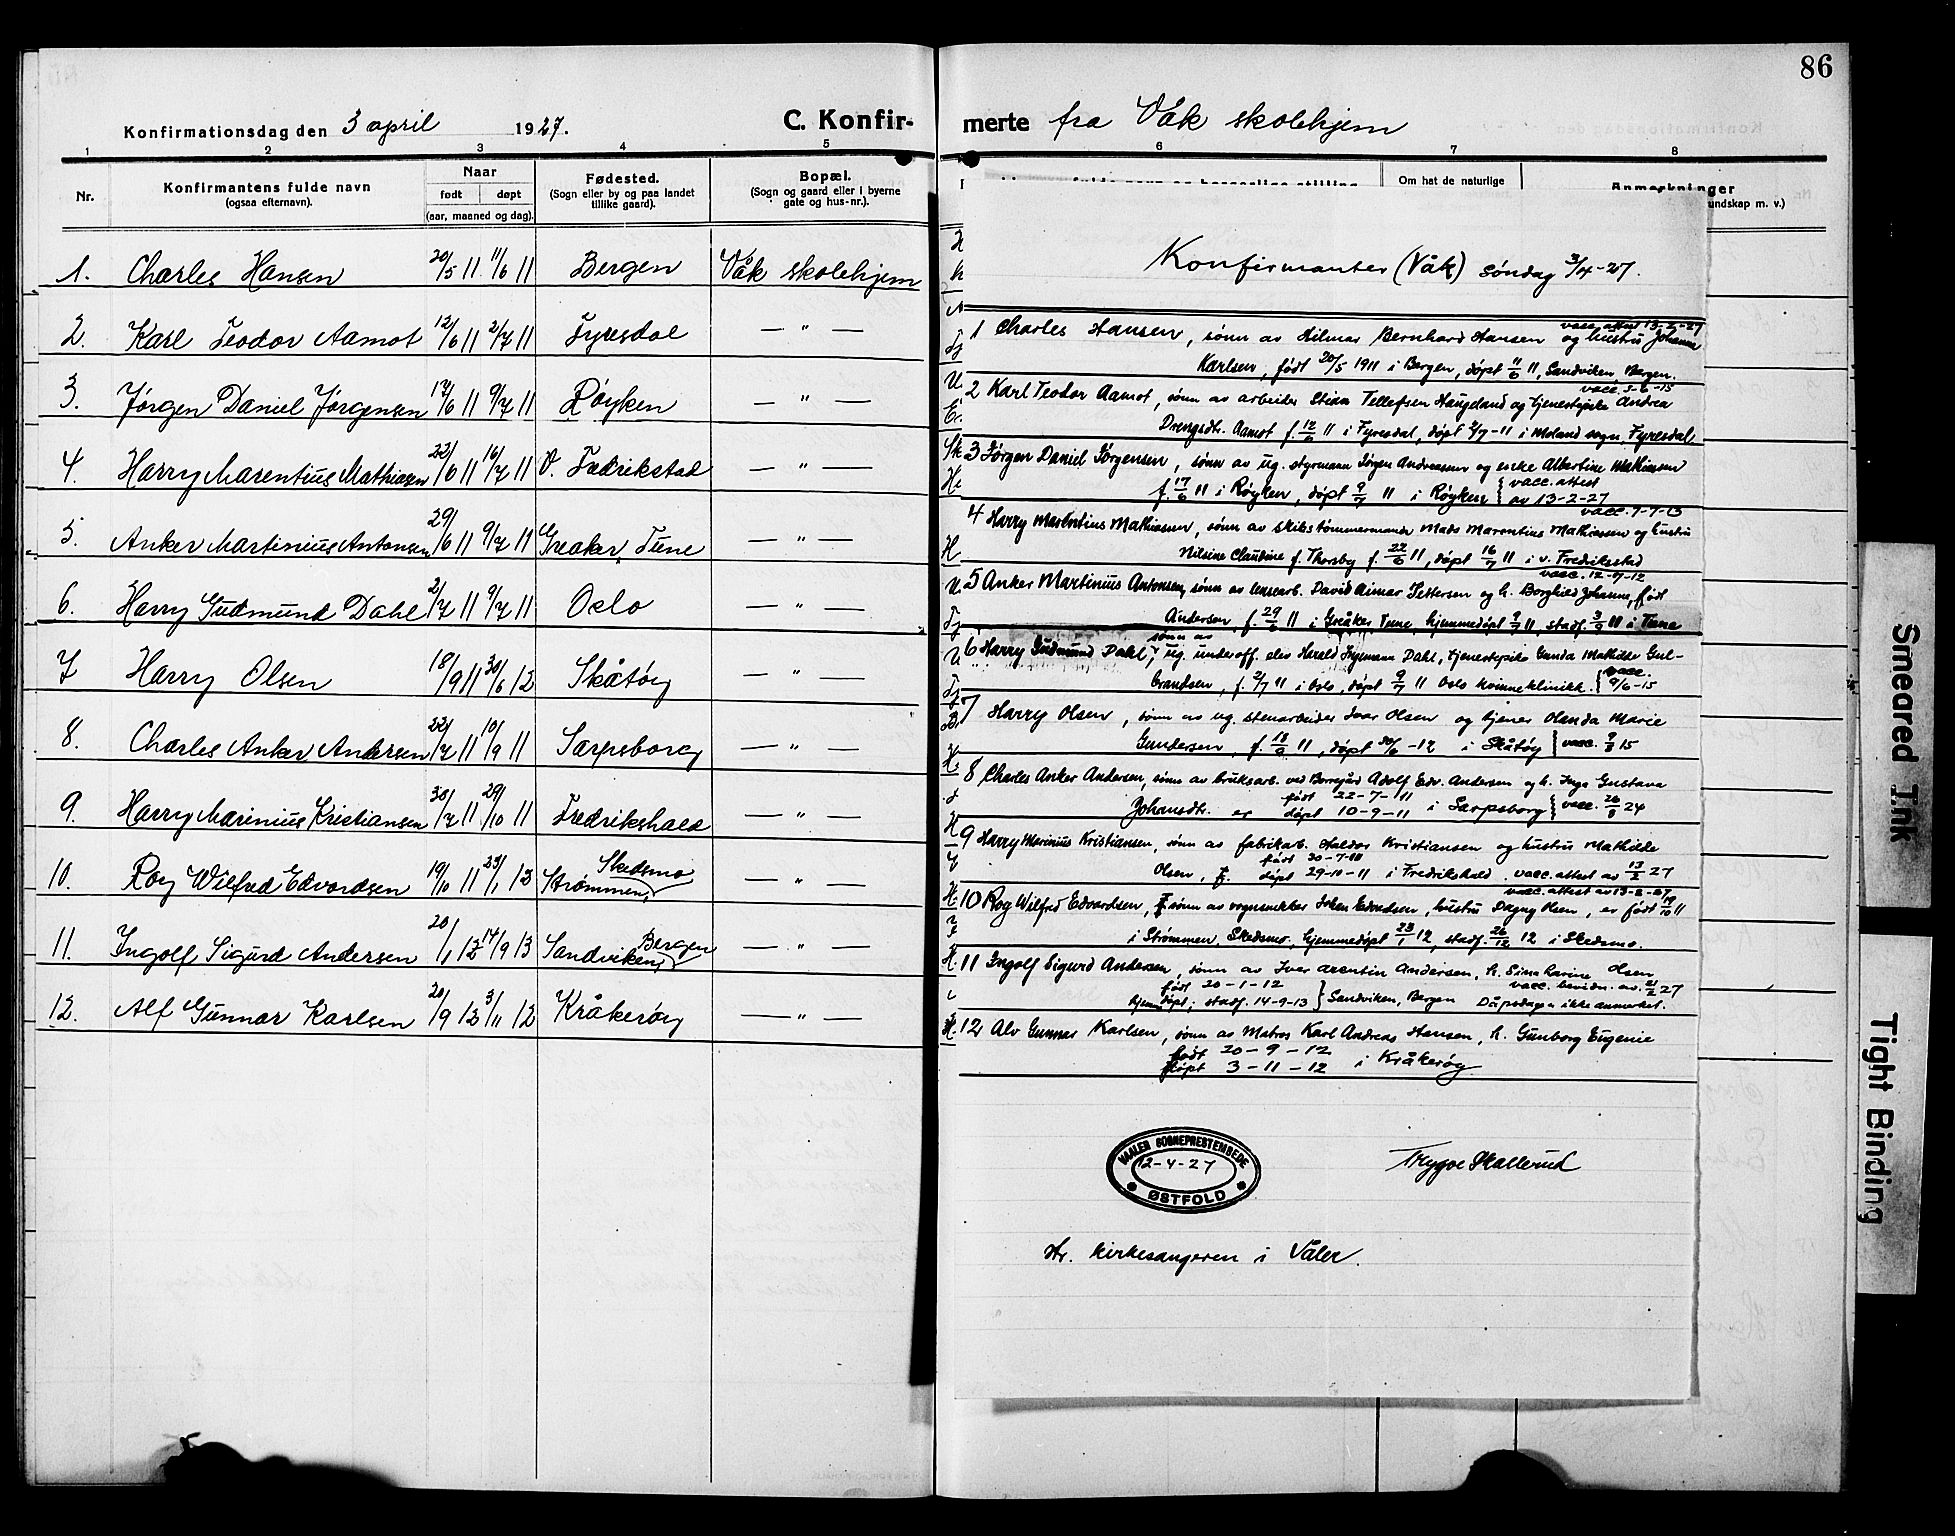 86
Konfirmationsdag den 3 april 1927.
C. Konfirmerte fra Våk skolehjem
1 2 3 4 5 6 7 8
Nr.
Konfirmantens fulde navn
(ogsaa efternavn).
Naar
født døpt
(aar, maaned og dag).
Fødested.
(Sogn eller by og paa landet
tillike gaard).
Bopæl.
(Sogn og gaard eller i byerne
gate og hus-nr.).
Om hat de naturlige
Anmerkninger
undskap m. v.)
1. Charles Hansen 20/5 11 11/6 11 Bergen Våk skolehjem
2. Karl Teodor Aamot 12/6 11 2/7 11 Fyresdal — " —
3. Jørgen Daniel Jørgensen 17/6 11 9/7 11 Røyken — " —
4. Harry Marentius Mathiasen 22/6 11 16/7 11 V. Fredrikstad — " —
5. Anker Martinius Antonsen 29/6 11 9/7 11 Greaker, Tune — " —
6. Harry Gudmund Dahl 2/7 11 9/7 11 Oslo — " —
7 Harry Olsen 18/9 11 30/6 12 Skåtøy — " —
8. Charles Anker Andersen 22/7 11 10/9 11 Sarpsborg — " —
9. Harry Marinius Kristiansen 30/7 11 29/10 11 Fredrikshald — " —
10. Roy Wilfred Edvardsen 19/10 11 23/1 12 Strømmen, Skedsmo — " —
11. Ingolf Sigurd Andersen 20/1 12 14/9 13 Sandviken, Bergen — " —
12. Alf Gunnar Karlsen 20/9 12 3/11 12 Kråkerøy — " —
Konfirmanter (Våk) søndag 3/4-27.
vacc. attest 13-2-27
1 Charles Hansen, sønn av Hilmar Bernhard Hansen og hustru Johanna
Karlsen, født 20/5 1911 i Bergen, døpt 11/6 11, Sandviken Bergen.
vacc. 3-6-15
2 Karl Teodor Aamot, sønn av arbeider Stian Tellefsen Haugeland og tjenestepike Andrea
Drengsdtr. Aamot f. 12/6 11 i Fyresdal, døpt 2/7-11 i Moland sogn, Fyresdal
3 Jørgen Daniel Jørgensen, sønn av ug. styrmann Jørgen Andreassen og enke Albertine Mathiesen
f. 17/6 11 i Røyken, døpt 9/7 11 i Røyken { vacc. attest
av 13-2-27
vacc. 7-7-13
4 Harry Marentius Mathiassen, sønn av skibstømmermann Mads Marentius Mathiassen og hustru
Nilsine Claudine f. Thorsby f. 22/6 11, døpt 16/7 11 i v. Fredrikstad
vacc. 12-7-12
5 Anker Martinius Antonsen, sønn av lensearb. David Aimar Pettersen og h. Borghild Johanne, født
Andersen f. 29/6 11 i Greåker Tune, hjemmedøpt 9/7 11, stadf. 3/9 11 i Tune
sønn av
6 Harry Gudmund Dahl, ug. underoff. elev Harald Ingemann Dahl, tjenestepike Gunda Mathilde Gul-
brandsen, f. 2/7 11 i Oslo, døpt 9/7 11 Oslo kvinneklinikk. { vacc.
9/6-15
7 Harry Olsen, sønn av ug. stenarbeider Ivar Olsen og tjener Olanda Marie
Gundersen, f. 18/9 11, døpt 30/6-12 i Skåtøy { vacc. 15
8 Charles Anker Andersen, sønn av bruksarb. ved Borregård Adolf Edv. Andersen og h. Inga Gustava
Johansdtr. er født 22-7-11
døpt 10-9-11 i Sarpsborg { vacc. 24
9 Harry Marinius Kristiansen, sønn av fabrikarb. Haldor Kristiansen og hustru Mathilde
Olsen, født 30-7-11
døpt 29-10-11 i Fredrikshald. vacc. attest av 13/2 27
vacc. attest av 13-2-27
10 Roy Wilfred Edvardsen, sønn av vognsnekker Edvardsen, hustru Dagny Olsen, er født 19/10 11
i Strømmen, Skedsmo, hjemmedøpt 23/1 12, stadf. 26/12 12 i Skedsmo.
11 Ingolf Sigurd Andersen, sønn av Iver Arentin Andersen, h. Sina Karine Olsen
født 20-1-12 vacc. bevidn. av 21/2 27
hjemdøpt; stadf. 14-9-13 } Sandviken, Bergen Dåpsdagen ikke anmerket.
12 Alv Gunnar Karlsen, sønn av Matros Karl Andreas Hansen, h. Gunborg Eugenie
født 20-9-12
døpt 3-11-12 i Kråkerøy
VAALER SOGNEPRESTEMBEDE
12-4-27
ØSTFOLD
Trygve Skallerud
Hr. kirkesangeren i Våler.
Smeared Ink
Tight Binding